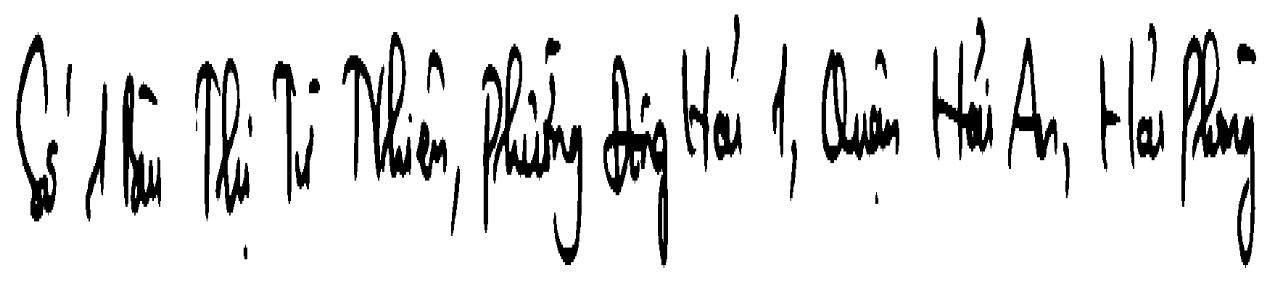 Số 1 Bùi Thị Từ Nhiên, Phường Đông Hải 1, Quận Hải An, Hải Phòng